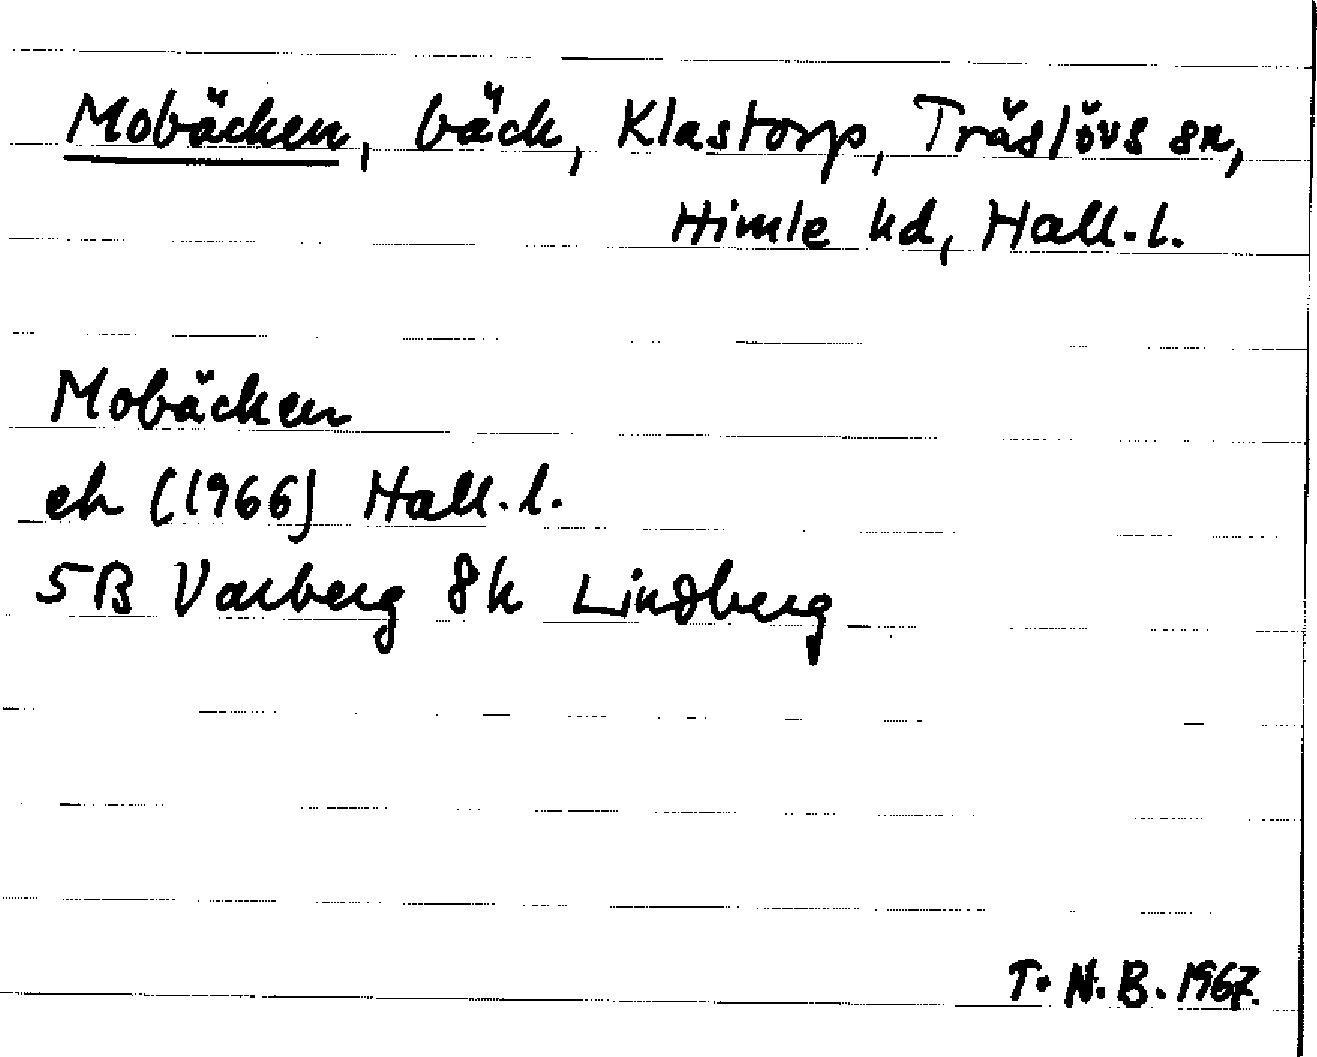 Mobäcken, bäck, Klastorp, Träslövs sn,
Himle hd, Hall. l.
Mobäcken
ek (1966) Hall. l.
5B Varberg 8h Lindberg
T. N. B. 1967.